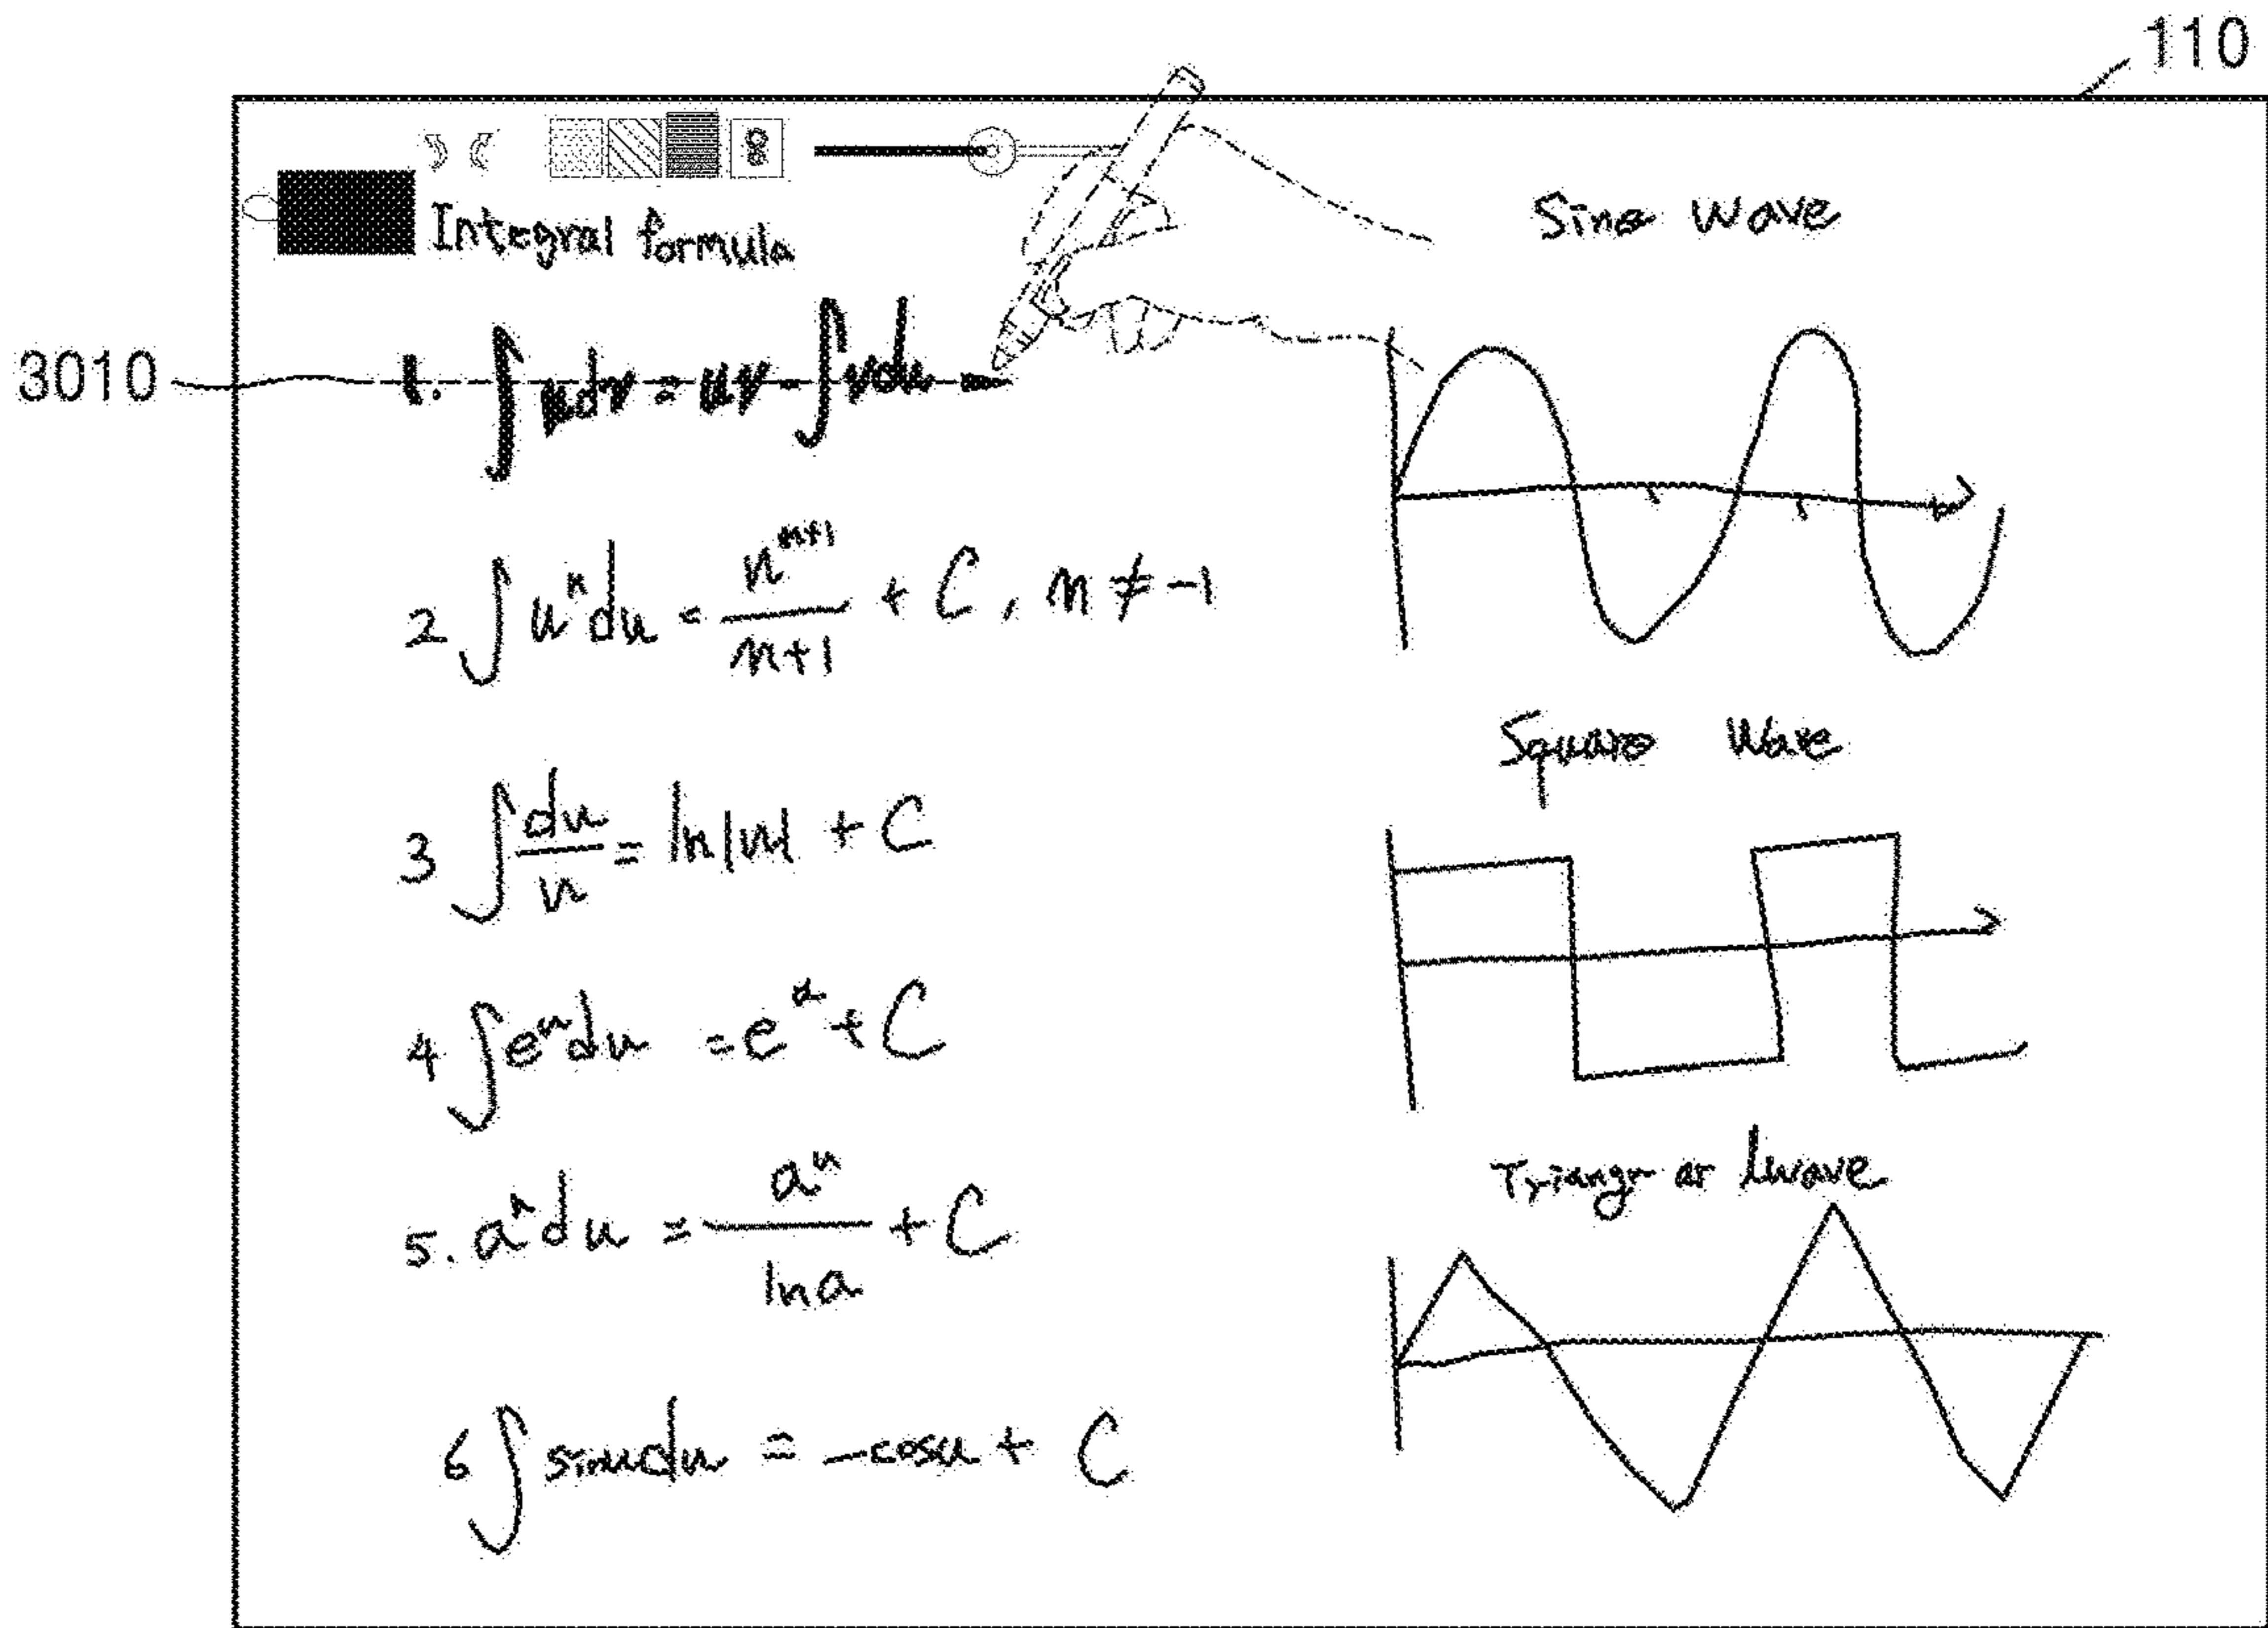 110
Integral formula
3010
1. ∫ u dv = uv - ∫ v du
2 ∫ uⁿ du = nⁿ⁺¹/n+1 + C, n ≠ -1
3 ∫ du/u = ln|u| + C
4 ∫ eᵘ du = eᵘ + C
5. aⁿ du = aᵘ/ln a + C
6 ∫ sinu du = -cosu + C
Sine Wave
Square Wave